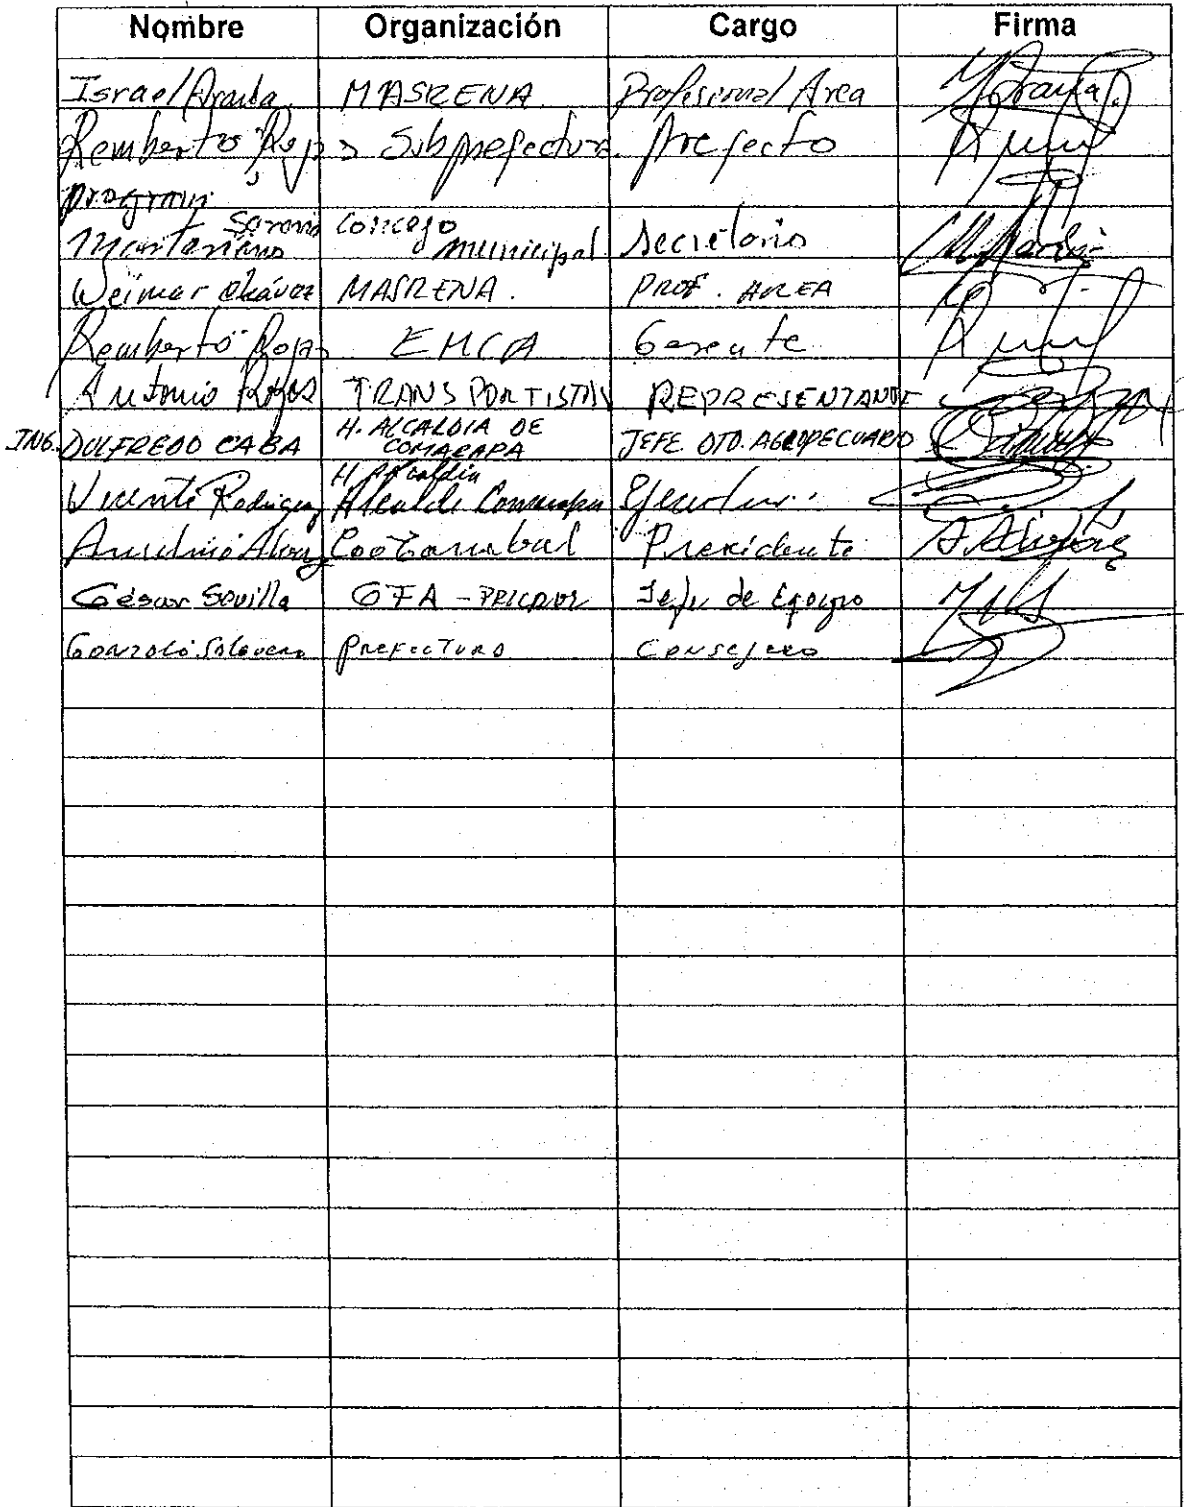 Nombre Organización Cargo Firma
Israel Aranda MASRENA Profesional Area
Remberto Rojas Subprefectura Prefecto
program
Saravia Concejo
municipal Secretario
Weimar Chávez MASRENA. PROF. AREA
Remberto Rojas EMCA Gerente
Antonio Rojas TRANSPORTISTAS REPRESENTANTE
ING. DULFREDO CABA H. ALCALDIA DE COMARAPA JEFE DTO. AGROPECUARIO
H. Alcaldia
Vicente Rodriguez Alcalde Comarapa
Anselmo Presidente
César Sevilla GFA - Jefe de Equipo
Gonzalo Prefectura Consejero